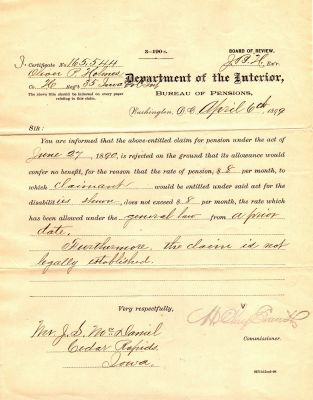 3-190 a.
BOARD OF REVIEW.
J. Certificate No. 165,544
Oliver P. Holmes
Co. H Reg't 35 Iowa
The above title should be indorsed on every paper
relating to this claim.
Department of the Interior,
BUREAU OF PENSIONS,
Washington, D. C., April 6th, 1899
SIR:
You are informed that the above-entitled claim for pension under the act of
June 27, 1890, is rejected on the ground that its allowance would
confer no benefit, for the reason that the rate of pension, $ 8 per month, to
which claimant would be entitled under said act for the
disabilities shown, does not exceed $ 8 per month, the rate which
has been allowed under the general law from a prior
date.
Furthermore, the claim is not
legally established.
Very respectfully,
Commissioner.
Mr. J. S. McDaniel
Cedar Rapids,
Iowa.